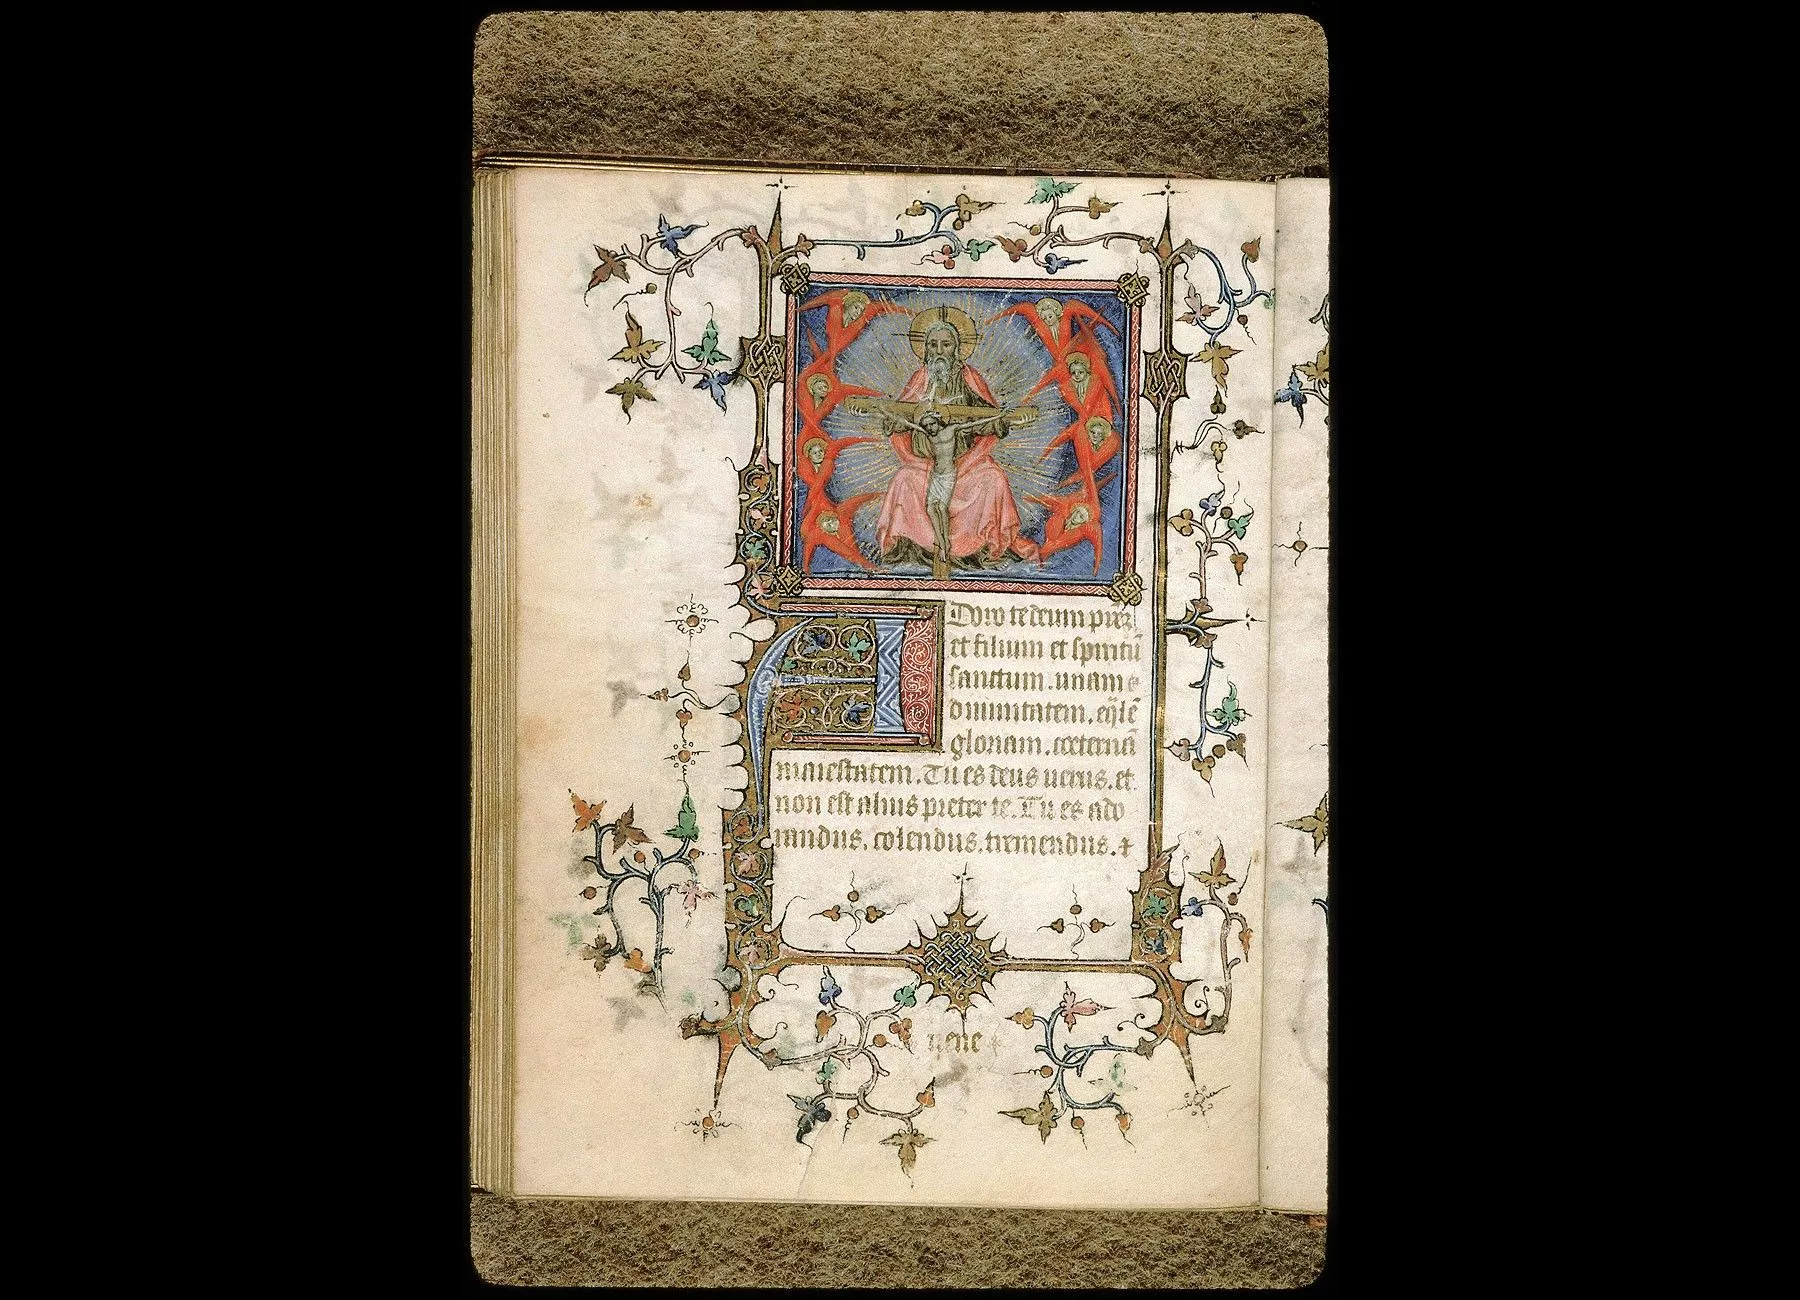 Adoro te deum prēȝ
et filium et spiritū
sanctum. unam
diuinitatem. eq̄lē
gloriam. coeternā
maiestatem. Tu es deus uerus. et
non est alius preter te. Tu es ado
randus. colendus. tremendus. ⁊
uene